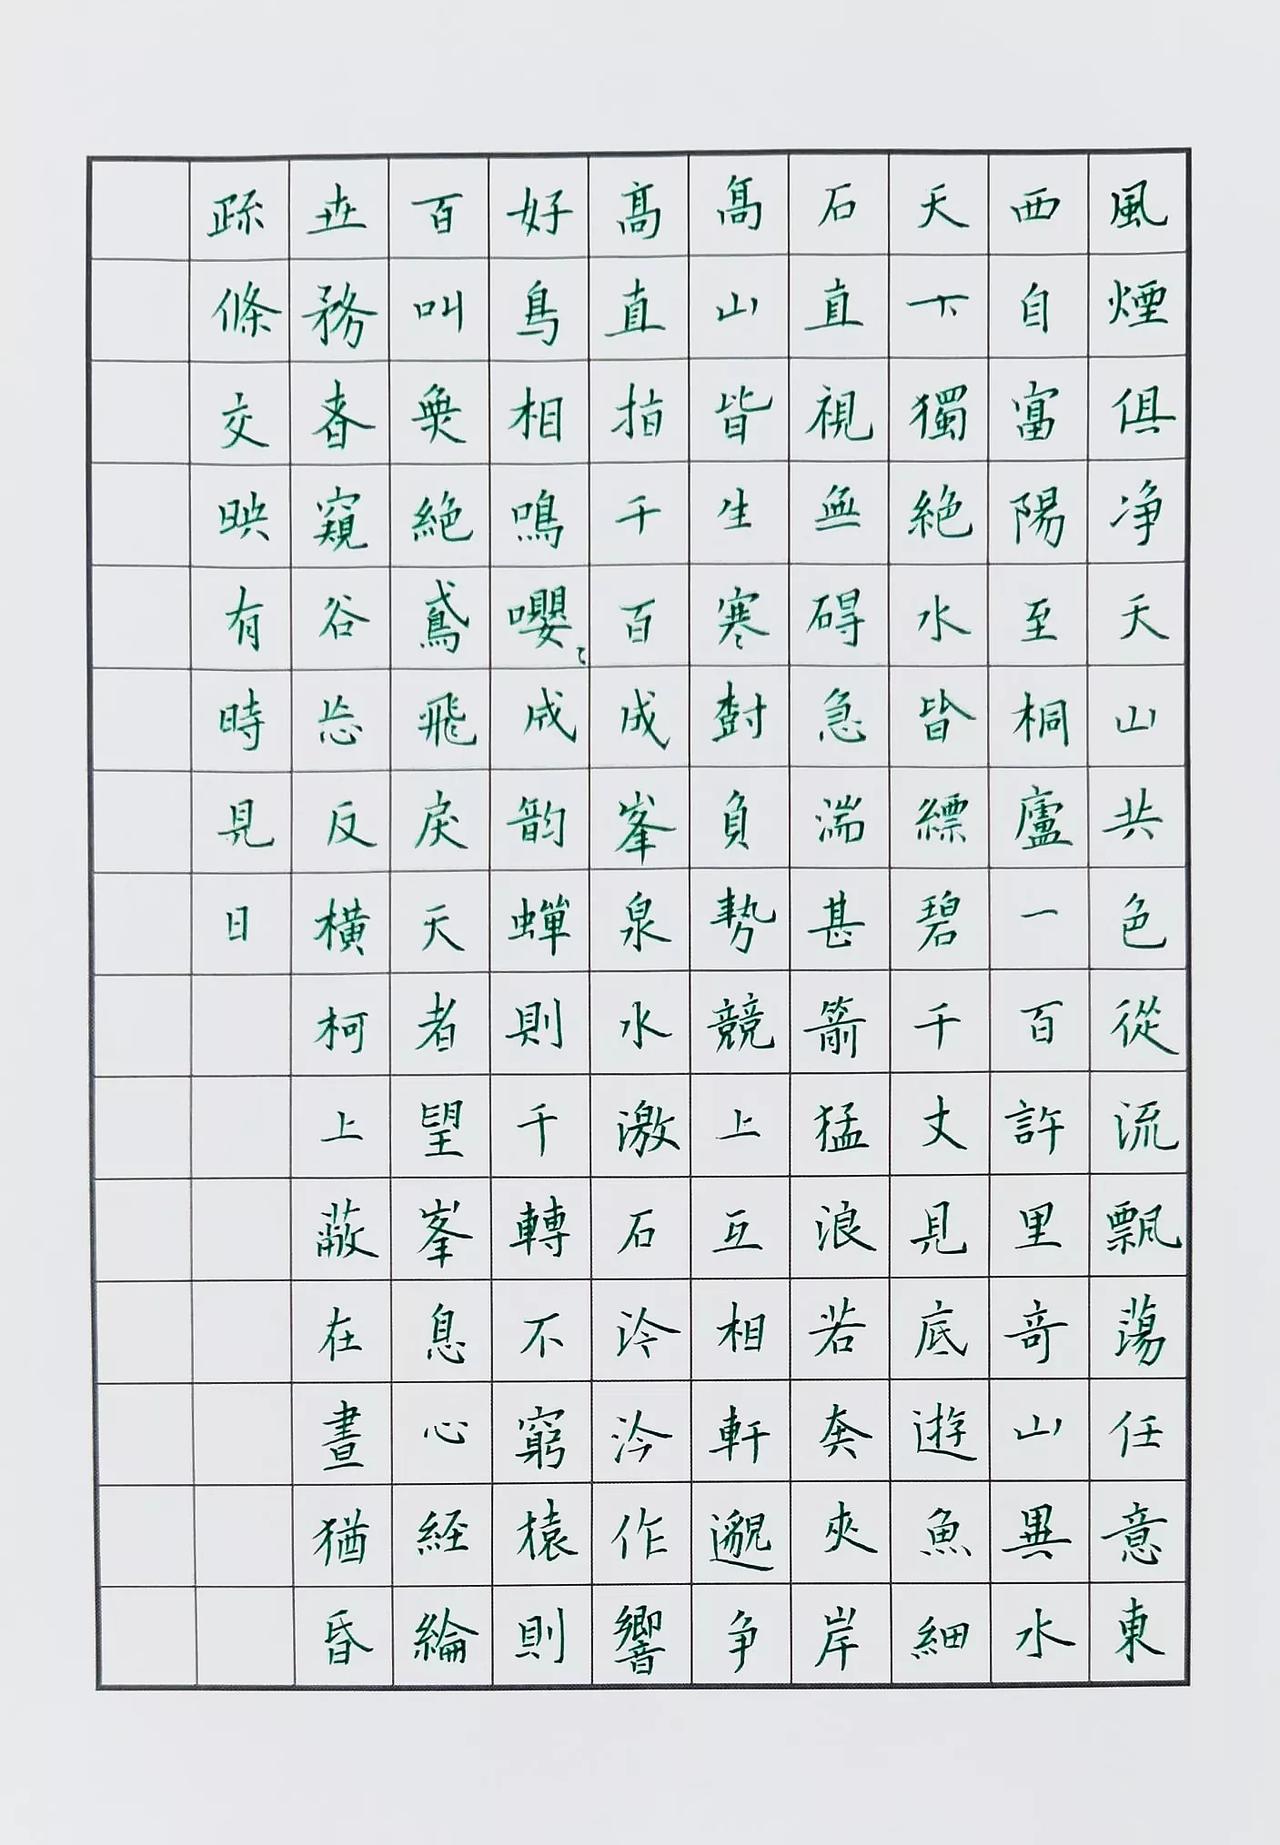 風煙俱净天山共色從流飄蕩任意東
西自富陽至桐廬一百許里竒山異水
天下獨絕水皆縹碧千丈見底遊魚細
石直視無碍急湍甚箭猛浪若奔夾岸
髙山皆生寒樹負勢競上互相軒邈争
髙直指千百成峯泉水激石泠泠作響
好鳥相鳴嚶〻成韵蟬則千轉不窮猿則
百叫無絕鳶飛戾天者望峯息心経綸
世務者窺谷忘反橫柯上蔽在晝猶昏
疏條交映有時見日